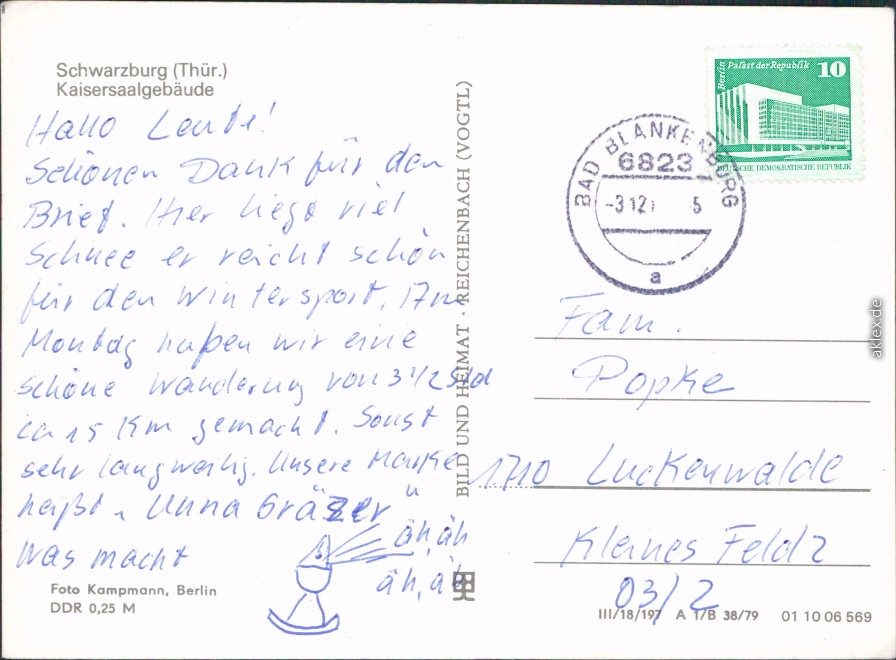 Schwarzburg (Thür.)
Kaisersaalgebäude
Hallo Leute!
Schönen Dank für den
Brief. Hier liegt viel
Schnee er reicht schön
für den Wintersport. Im
Montag haben wir eine
schöne Wanderung von 3 1/2 Std
ca 15 Km gemacht. Sonst
sehr langweilig. Unsere Marke
heißt „ Unna Gräser "
was macht
äh, äh
äh, äh
Foto Kampmann, Berlin
DDR 0,25 M
BILD UND HEIMAT · REICHENBACH (VOGTL)
Berlin Palast der Republik 10
DEUTSCHE DEMOKRATISCHE REPUBLIK
BAD BLANKENBURG
6823
-3.12. 5
a
Fam.
Popke
1710 Luckenwalde
Kleines Feld 2
03/2
III/18/197 A 1/B 38/79 01 10 06 569
aklex.de